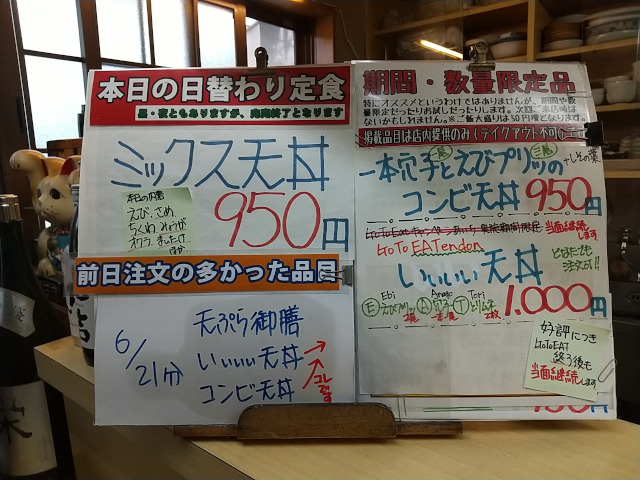 本日の日替わり定食
昼・夜ともありますが、売切終了となります
ミックス天丼
950円
本日の内容
えび、さめ、
ちくわ、みょうが
オクラ、まいたけ
ほか
前日注文の多かった品目
6/21分
天ぷら御膳
いいぃぃ天丼→
コンビ天丼
コレ
です
期間・数量限定品
特にオススメというわけではありませんが、期間や数
量限定だったりお試しだったりします。次回ご来店時は
ないかもしれません。※ご飯大盛りは50円増となります。
掲載品目は店内提供のみ(テイクアウト不可)
一本穴子とえびプリッの
コンビ天丼 950円
当面継続
します
GoTo EATendon
いいぃぃ天丼
どなたでも
注文OK!!
1.000円
Ebi Anago Tori
E えびプリッ A 穴子 T とりムネ
2尾 一本 2枚
好評につき
GoToEAT
終了後も
当面継続します